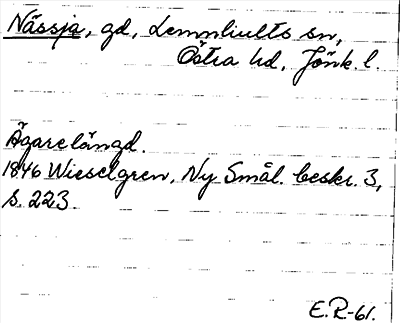 Nässja, gd, Lemnhults sn,
Östra hd, Jönk. l.
Ägarelängd.
1846 Wieselgren, Ny Smål. beskr. 3,
s. 223.
E.R-61.